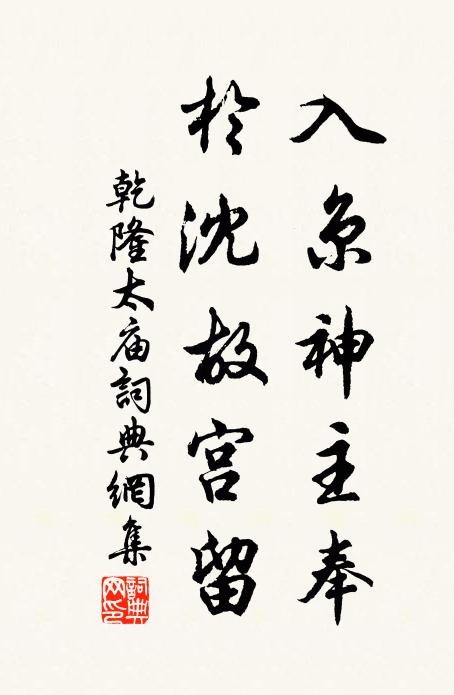 入京神主奉
於沈故宫留
乾隆太庙詞典網集
詞典网印